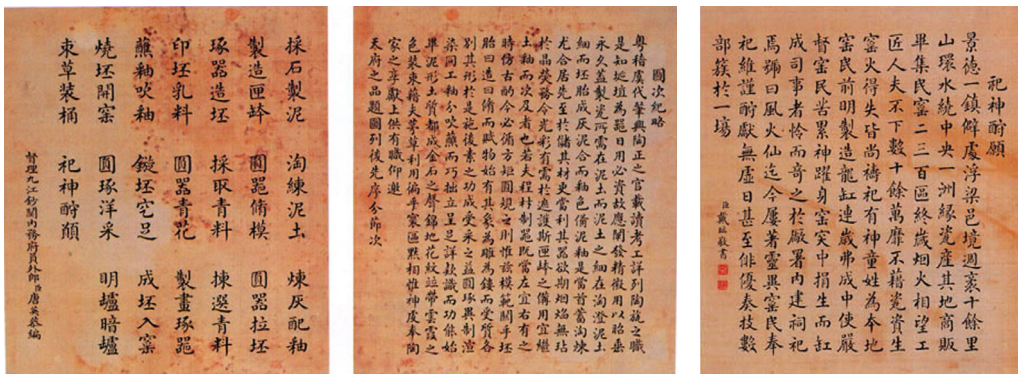 採石製泥 淘練泥土 煉灰配釉
製造匣鉢 圓器脩模 圓器拉坯
琢器造坯 採取青料 揀選青料
印坯乳料 圓器青花 製畫琢器
蘸釉吹釉 鏇坯穵足 成坯入窑
燒坯開窑 圓琢洋采 明爐暗爐
束草装桶 祀神酧願
督理九江鈔關内務府員外郎臣唐英恭編
圖次紀略
粤稽虞代肇興陶正之官載讀考工詳列陶旊之職
是知埏埴為器日用必資故應闡發精微用以昭垂
永久蓋製瓷所需在泥土而泥土之細在淘澄泥土
細而坯胎成灰泥合而釉色備泥釉是當首蓄淘煉
尤合居先至於儲其材更當利其器欲期烟焰無玷
於晶熒務令光彩有需於遮護斯匣鉢之備用宜繼
土釉而次及者也若夫程材制器既當左宜右有之
時仿古酌今必備方矩圓規之則惟兹模範關乎坯
胎曰造曰脩而賦物始有其象為雕為鏤而受質各
别其形於是施後素之功成受采之益圓與琢制渲
染同工釉分吹蘸而巧拙立呈足詳款識而功能始
畢泥形土質都成金石之聲錦地花紋並帶雲霞之
色装束藉夫草利用偏乎寰區黙相惟神虔奉陶
家之享獻以供有職仰邀
天府之品題圖列後先序分節次
祀神酧願
景德一鎮僻處浮梁邑境週袤十餘里
山環水繞中央一洲緣瓷產其地商販
畢集民窑二三百區終歲烟火相望工
匠人夫不下數十餘萬靡不藉瓷資生
窑火得失皆尚禱祀有神童姓為本地
窑民前明製造龍缸連歲弗成中使嚴
督窑民苦累神躍身窑突中捐生而缸
成司事者怜而奇之於厰署内建祠祀
焉號曰風火仙迄今屢著靈異窑民奉
祀維謹酧獻無虛日甚至俳優奏技數
部簇於一塲
臣戴臨敬書